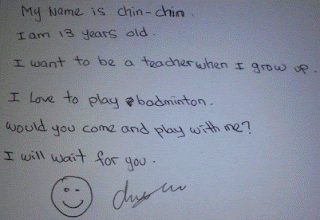 My Name is chin-chin.
I am 13 years old.
I want to be a teacher when I grow up.
I Love to play badminton.
would you come and play with me?
I will wait for you.